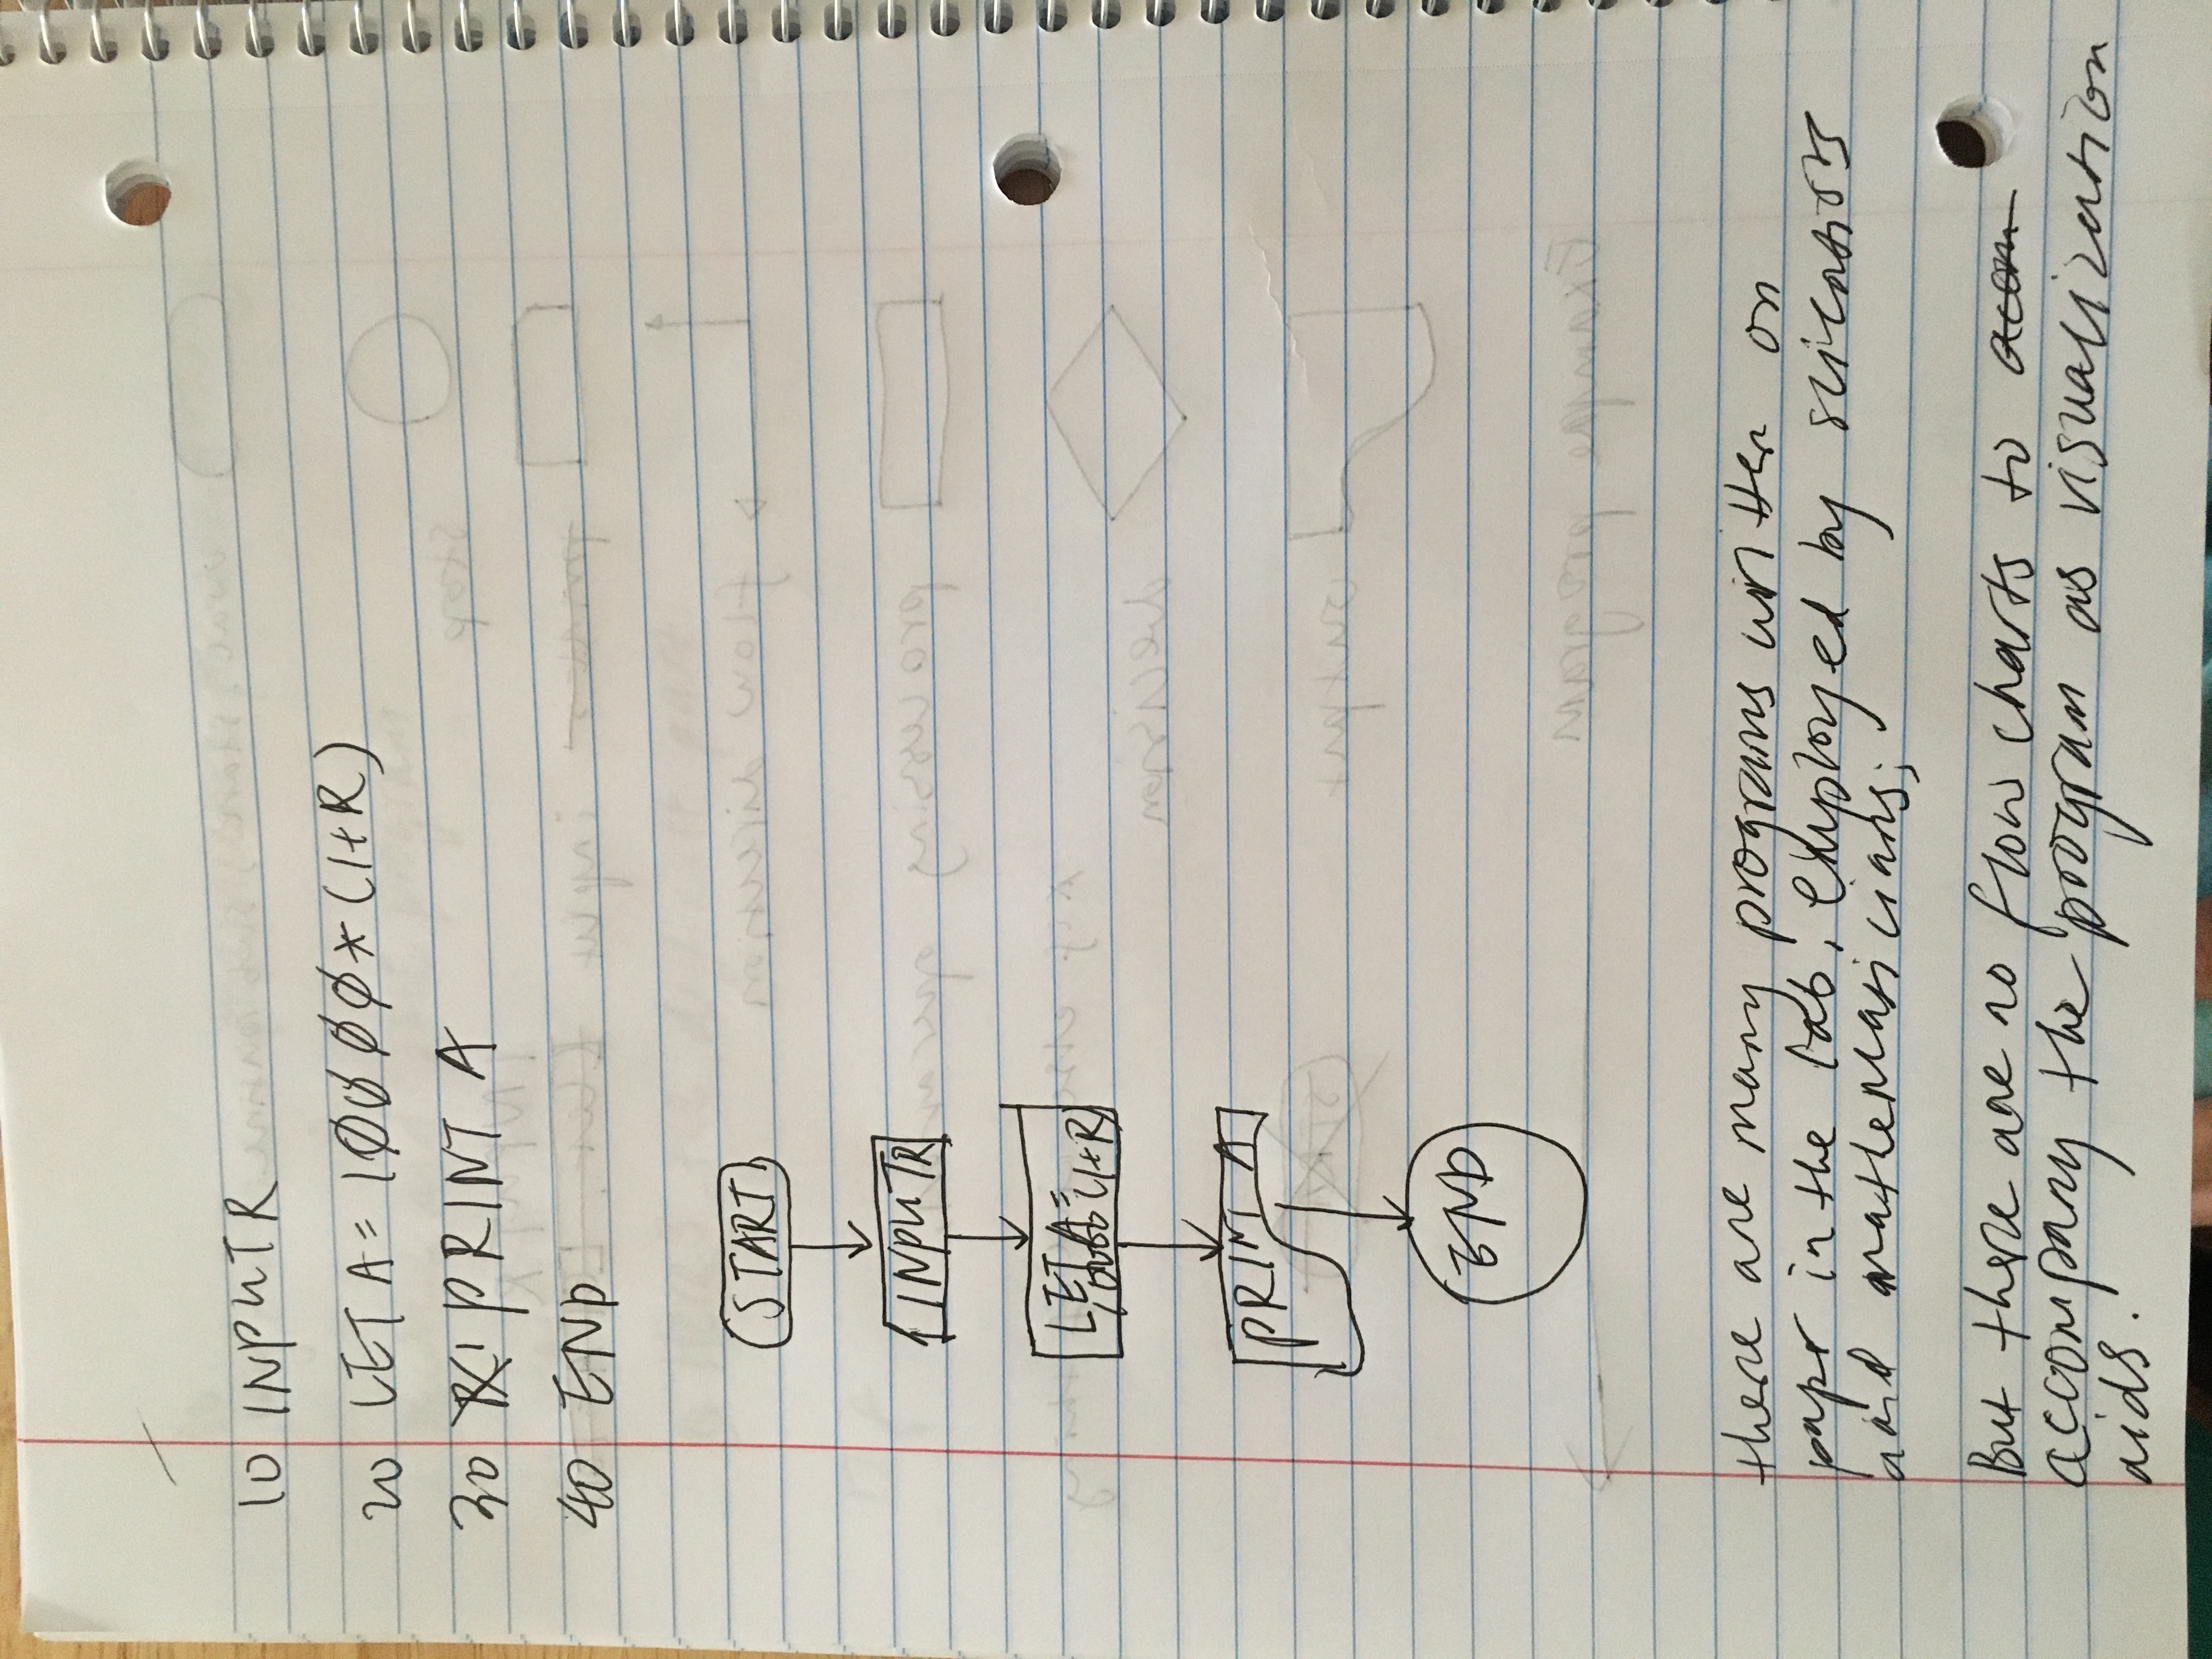 10 INPUT R
20 LET A = 10000*(1+R)
30 PRINT A
40 END
START
INPUT R
LET A =
10000 (1+R)
PRINT A
END
there are many programs written on
paper in the lab, employed by scientists
and mathematicians;
But there are no flow charts to acom
accompany the program as visualization
aids.